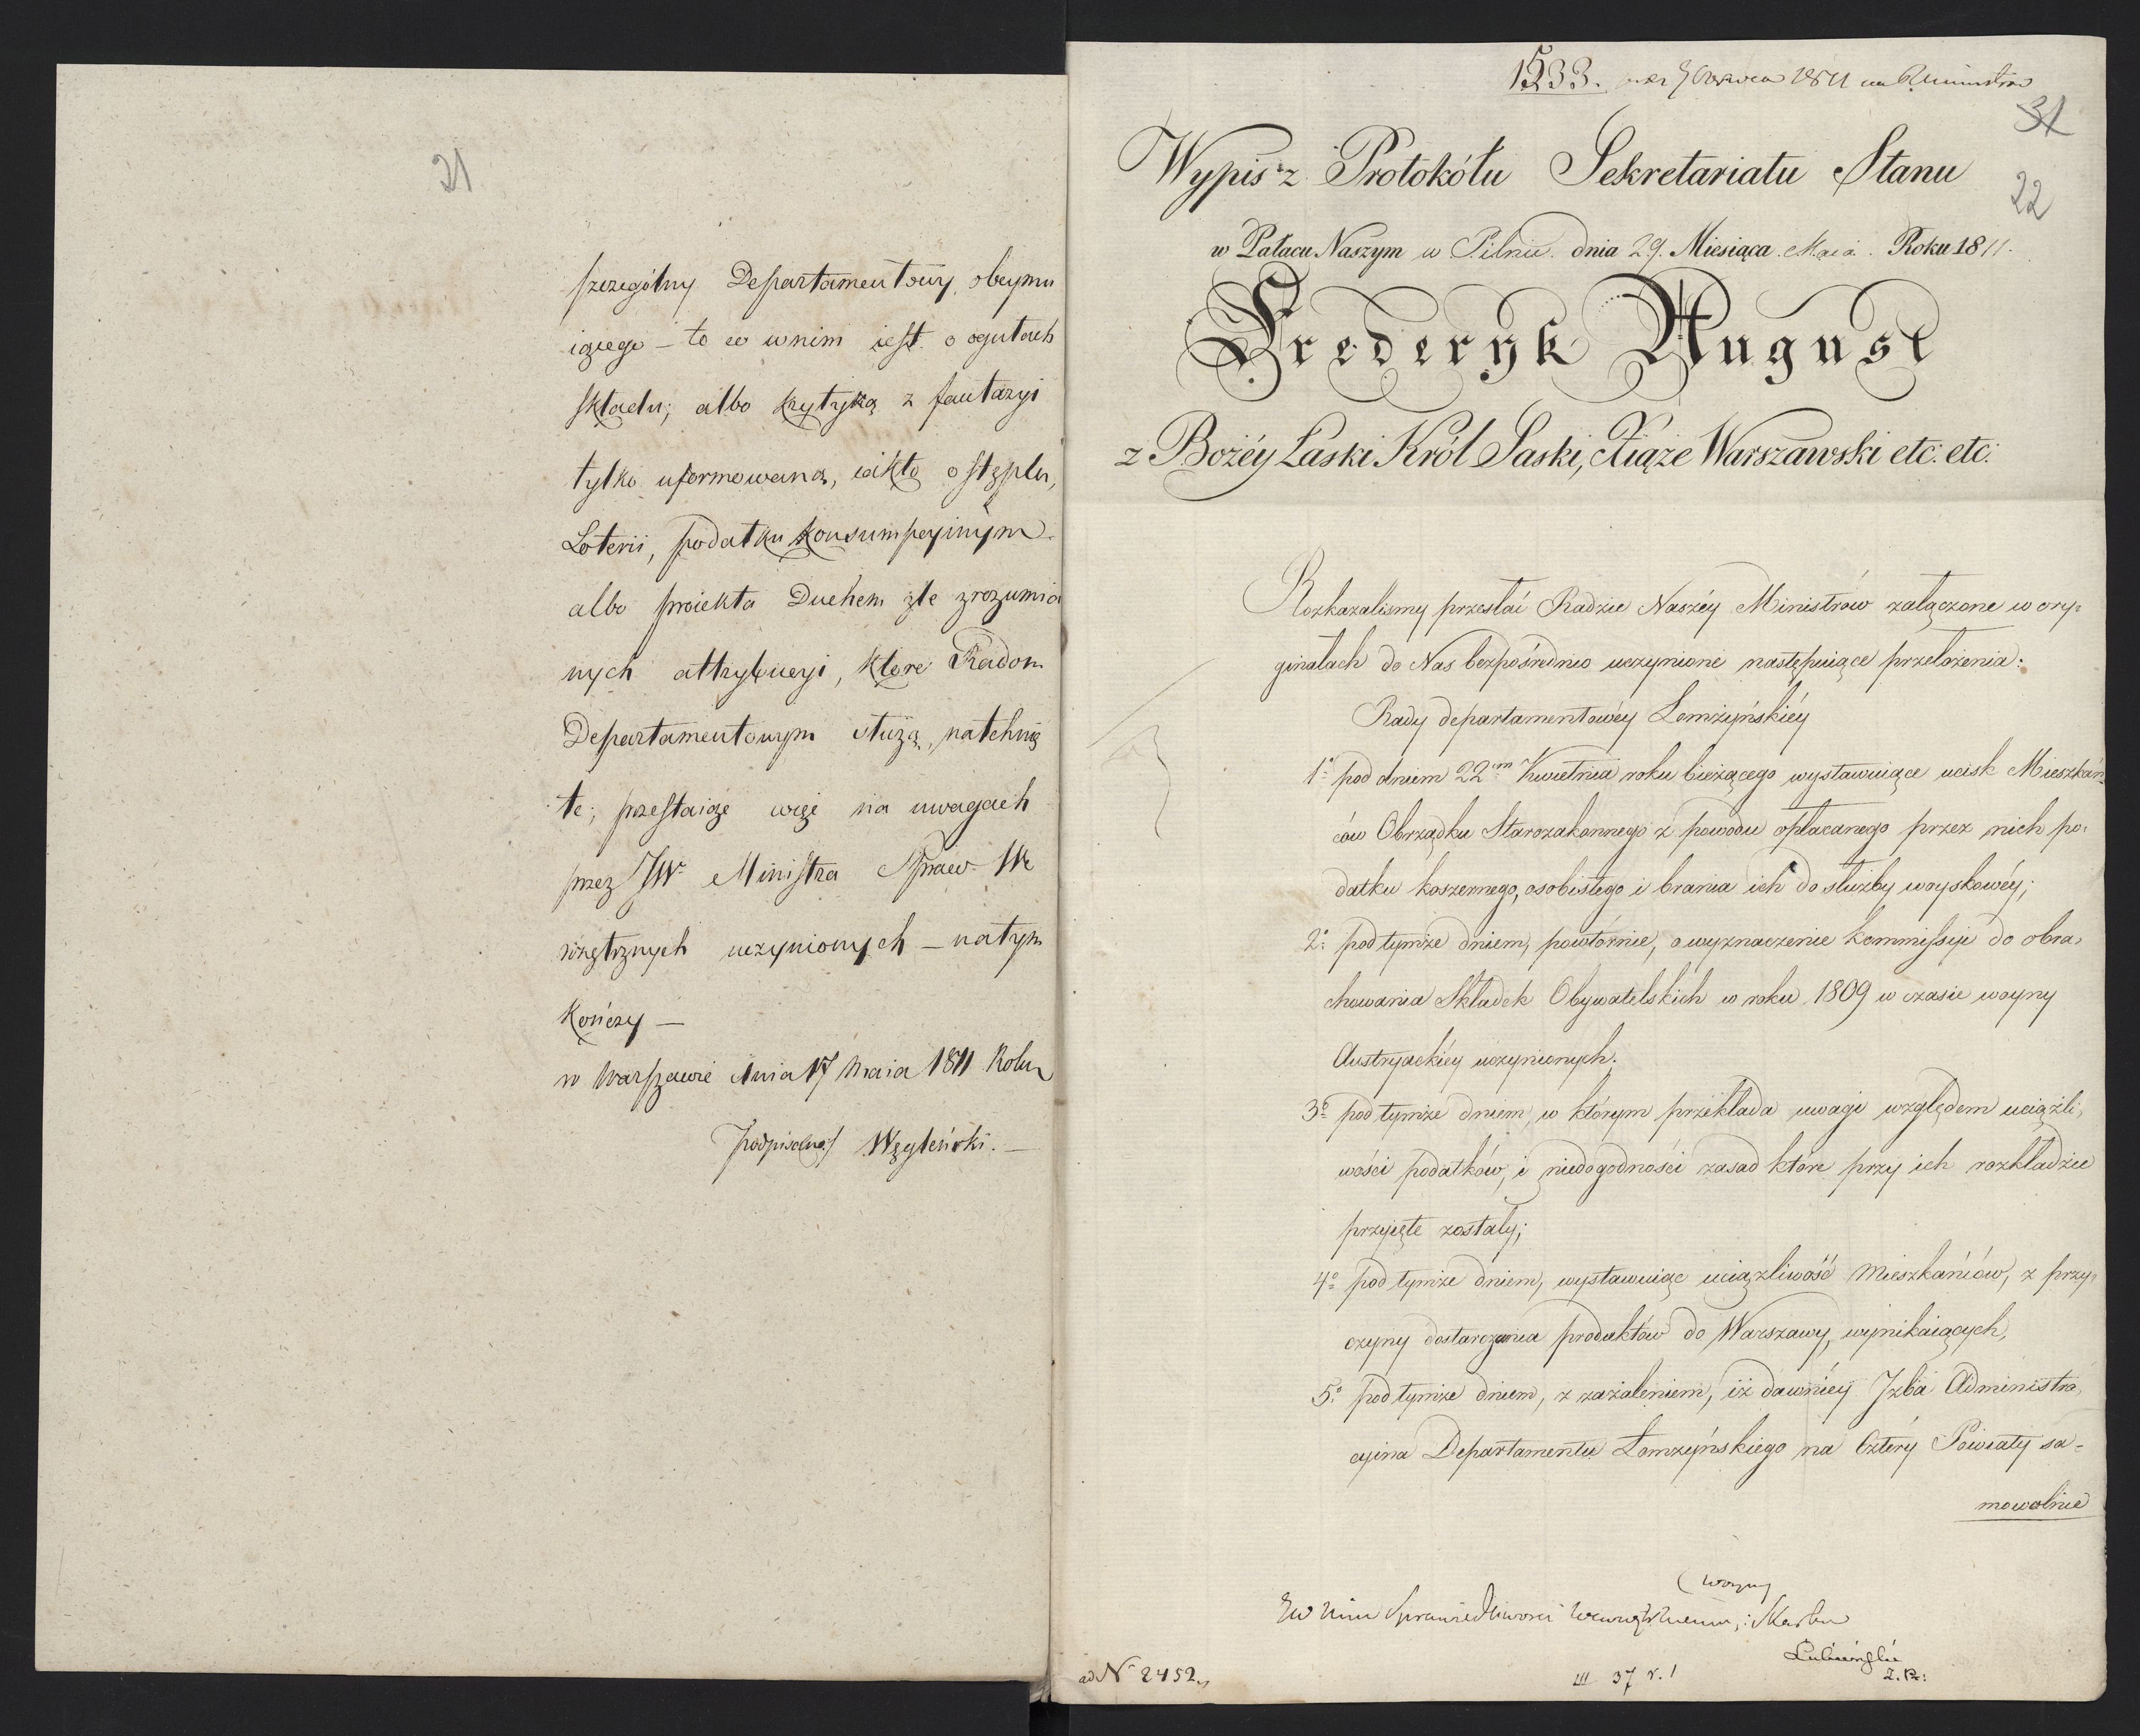 21
szczegółny Departamentowy, obeymu
iącego – to co w nim iest o ogułach
składu; albo krytyką z fantazyi
tylko uformowaną, iakto o stęplu,
Loterii, podatku konsumpcyinym –
albo proiekta Duchem źle zrozumia
nych attrybucyi, które Radom
Departamentowym służą, natchnię
te; przestaiąc więc na uwagach
przez JW. Ministra Spraw We
wnętrznych uczynionych – na tym
kończy –
w Warszawie dnia 17 Maia 1811 Roku
podpisano/ Węgleński. –
1533. Czerwca 1811
31
22
Wypis z Protokółu Sekretariatu Stanu
w Pałacu Naszym w Pilnic. dnia 29. Miesiąca Maia. Roku 1811.
Frederyk August
z Bożéy Łaski Król Saski, Xiąże Warszawski etc: etc:
Rozkazalismy przesłać Radzie Naszéy Ministrów załączone w ory-
ginałach do Nas bezpośrednio uczynione następuiące przełożenia:
Rady departamentowéy Łomżyńskiéy
1o pod dniem 22em Kwietnia roku bieżącego wystawuiące ucisk Mieszkań-
ców Obrządku Starozakonnego z powodu opłacanego przez nich po-
datku koszernego, osobistego i brania ich do służby woyskowéy;
2o pod tymże dniem, powtórnie, o wyznaczenie kommissyi do obra-
chowania Składek Obywatelskich w roku 1809 w czasie woyny
Austryackiéy uczynionych;
3o pod tymże dniem, w którym przekłada uwagi względem uciążli-
wości podatków, i niedogodności zasad które przy ich rozkładzie
przyięte zostały;
4o pod tymże dniem, wystawuiąc uciążliwość Mieszkańców, z przy-
czyny dostarczania produktów do Warszawy, wynikaiących,
5o pod tymże dniem, z zażaleniem, iż dawniéy Izba Administra-
cyina Departamentu Łomżyńskiego na Cztéry Powiaty sa-
mowolnie
(woyny
Sprawiedliwości Wewnętrznemu, i Skarbu
Lubieński
ad No 2452
III 37 r. 1